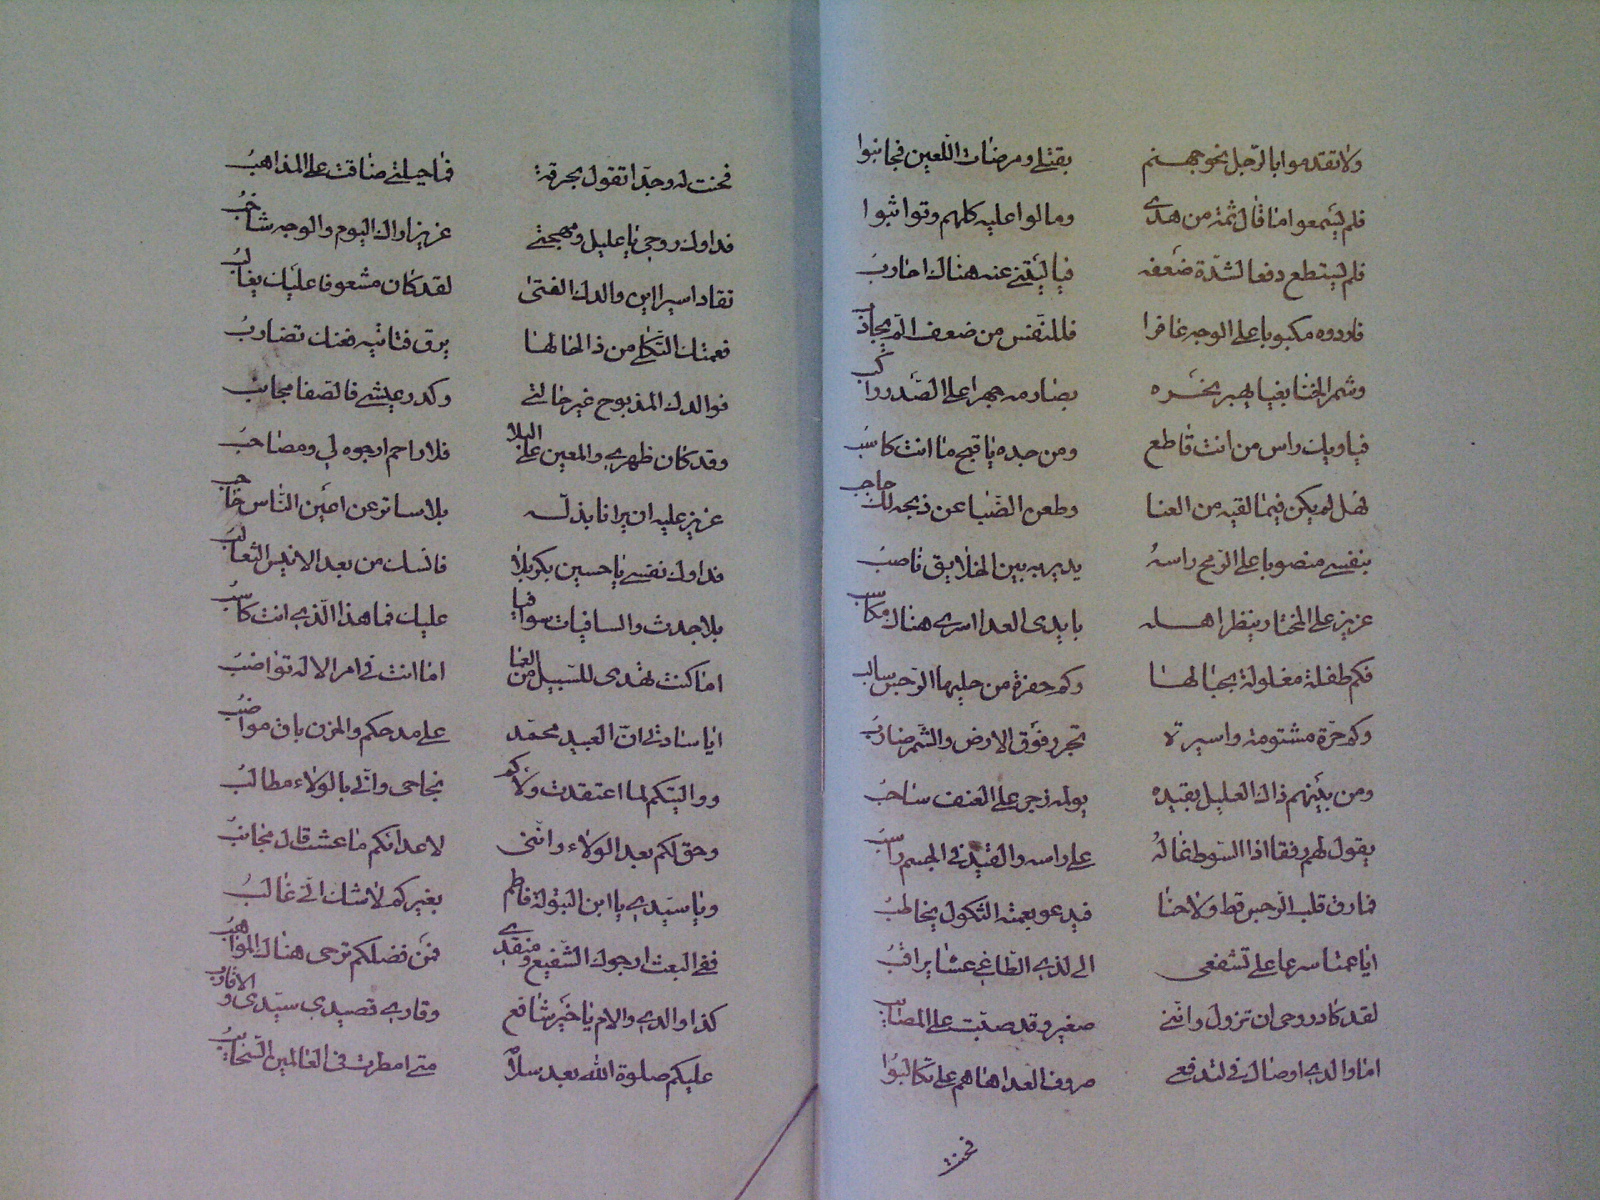 ولا تقدموا بالرجل نحو جهنم بقتلي ومرضات اللعين فجانبوا
فلم يسمعوا ما قال ثمة من هدى ومالوا عليه كلهم وتواثبوا
فلم يستطع دفعا لشدة ضعفه فيا ليتني عنه هناك احارب
فاردوه مكبوبا على الوجه عافرا فللنفس من ضعف الم يجاذب
وشمر الخنا بغيا يهبر نحره بصارمه جهرا على الصدر راكب
فيا ويك راس من انت قاطع ومن جده يا قبح ما انت كاسب
لهل لم يكن فيما لقيه من العنا وطعن الضبا عن ذبحه لك حاجب
بنفسي منصوبا على الرمح راسه يديربه بين الخلايق ناصب
عزيز على المختار ينظر اهله بايدى العدا اسرى هناك مكاسب
فكم طفلة مغلولة بحبالها وكم حرة من حليها الرجس سالب
وكم حرة مشتومة واسيرة تجرر فوق الارض والشمر ضارب
ومن بينهم ذاك العليل بقيده يوله زجر على العنف ساحب
يقول لهم رفقا اذا السوط غاله على راسه والقيد في الجسم راسب
فما رق قلب الرجس قط ولا حنا فيدعو بعمته الثكول يخاطب
ايا عمتا سرعا على تشفعى الى لذي الطاغي عشا يراقب
لقد كاد روحى ان تزول وانني صغير وقد صبت على المصائب
اما والدي اوصاك في لتدفعي صروف العدا هاهم على تكالبوا
فحنت
فحنت له وجدا تقول بحرقة فما حيلتي ضاقت على المذاهب
فداوك روحي يا عليل ومهجتي عزيز اراك اليوم والوجه شاحب
تقاد اسيرا اين والدك الفتى لقد كان مشعوفا عليك يغالب
فعمتك الثكلى من ذا لحالها يرق فتاتيه فعنك تضارب
فوالدك المذبوح غير حالتي وكدر عيشي فالصفا مجانب
وقد كان ظهري والمعين على البلا فلا راحم ارجوه لي ومصاحب
عزيز عليه ان يرانا بذلة بلا ساتر عن اعين الناس حاجب
فداوك نفسي يا حسين بكربلا فانسك من بعد الانيس الثعالب
بلا جدث والسافيات سوافيا عليك فما هذا الذي انت كاسب
اما كنت تهدى للسبيل من العما اما انت في امر الاله تواضب
ايا سادتي ان العبيد محمد على مدحكم والحزن باق مواضب
وواليتكم لما اعتقدت ولاكم نجاحى واني بالولاء مطالب
وحق لكم بعد الولاء وانني لاعدائكم ما عشت قال مجانب
ويا سيدي يا ابن البتولة فاطم بغيركم لا شك اني غالب
ففي البعث ارجوك الشفيع ومنقدي فمن فضلكم ترجى هناك المواهب
كذا والدي والام يا خير شافع وقاري قصيدى سيدى والاقارب
عليكم صلوة الله بعد سلامٌ متى امطرت في العالمين السحائب